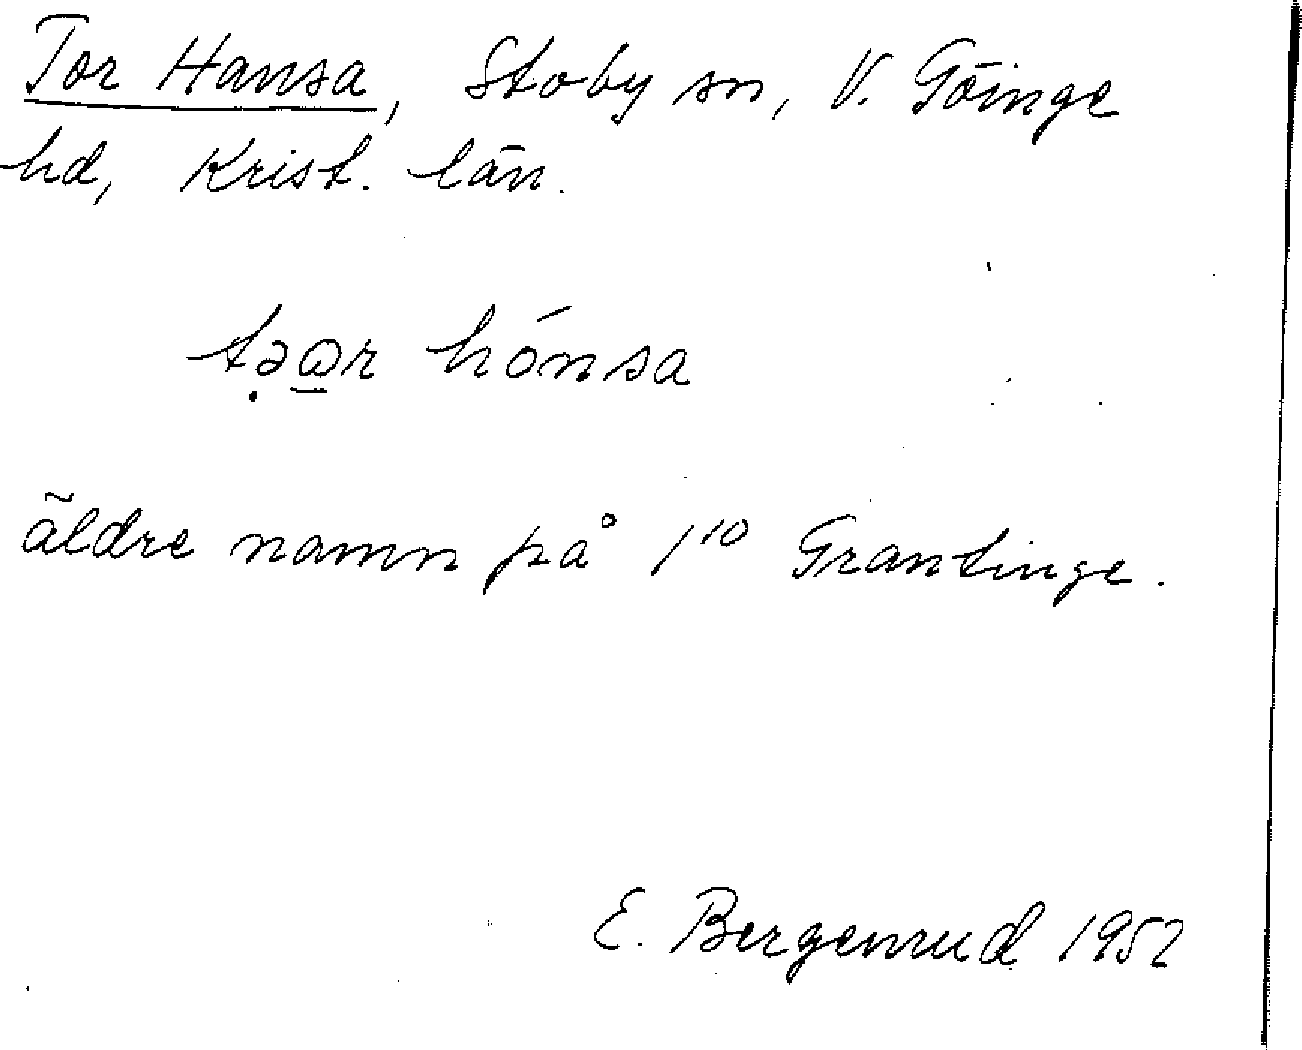 Tor Hansa, Stoby sn, V. Göinge
hd, Krist. län.
tə̣ω̲r hónsa
äldre namn på 1¹⁰ Grantinge.
E. Bergenrud 1952